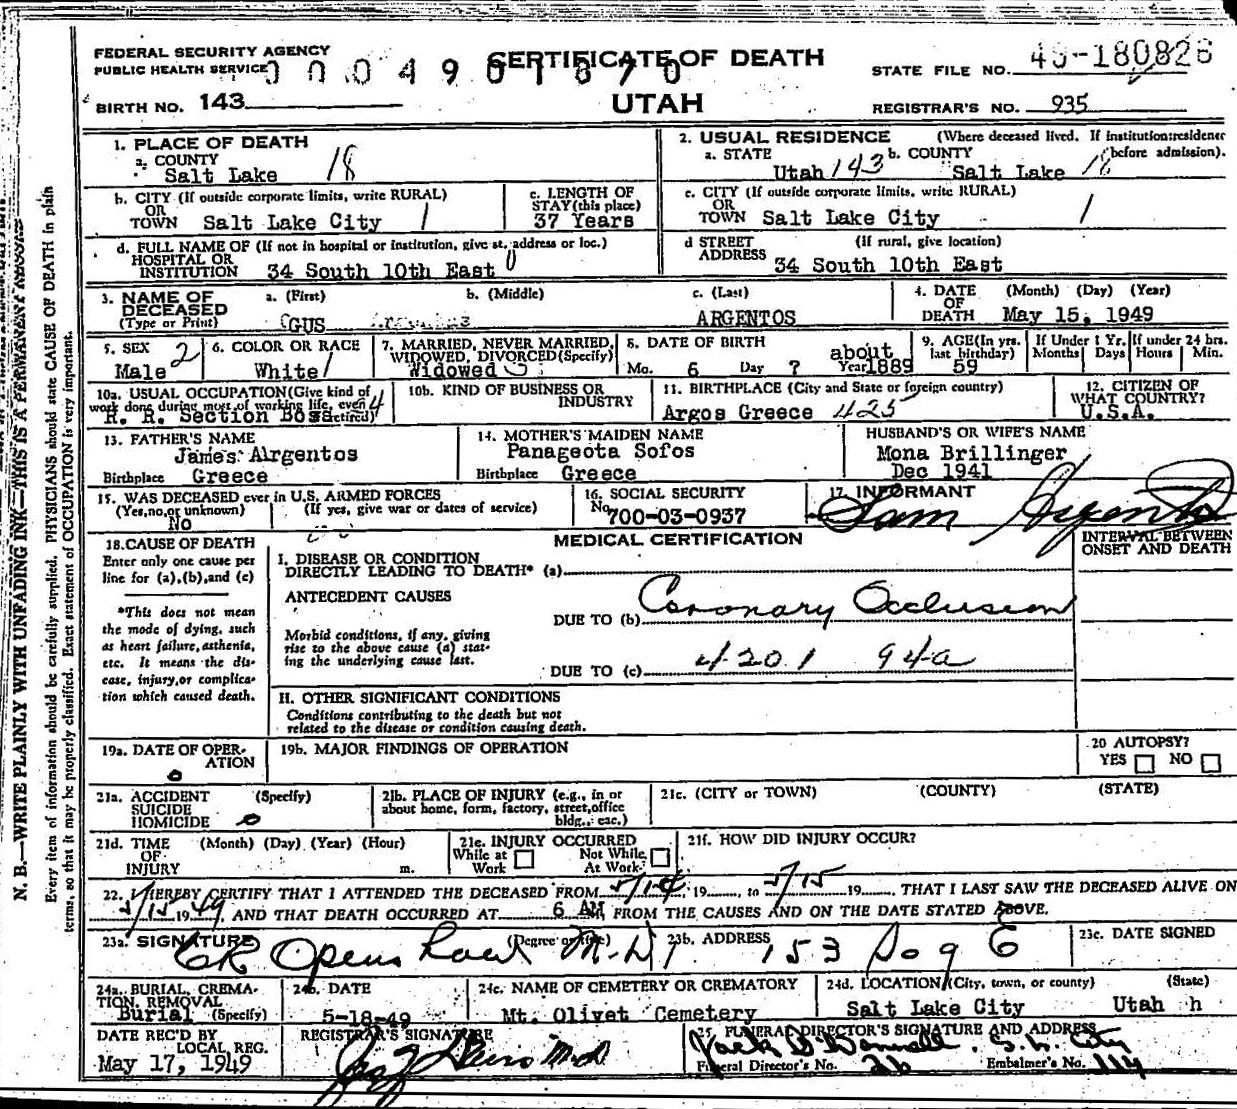 FEDERAL SECURITY AGENCY
PUBLIC HEALTH SERVICE
0 0 0 4 9 0 1 8 7 0
CERTIFICATE OF DEATH
STATE FILE NO. 49-180826
BIRTH NO. 143
UTAH
REGISTRAR'S NO. 935
1. PLACE OF DEATH
a. COUNTY
Salt Lake 18
2. USUAL RESIDENCE (Where deceased lived. If institution:residence before admission).
a. STATE Utah 143 b. COUNTY Salt Lake 18
b. CITY (If outside corporate limits, write RURAL)
OR
TOWN Salt Lake City 1
c. LENGTH OF STAY(this place)
37 Years
c. CITY (If outside corporate limits, write RURAL)
OR
TOWN Salt Lake City 1
d. FULL NAME OF (If not in hospital or institution, give st. address or loc.)
HOSPITAL OR
INSTITUTION 34 South 10th East 0
d STREET (If rural, give location)
ADDRESS 34 South 10th East
3. NAME OF DECEASED
(Type or Print)
a. (First) b. (Middle) c. (Last)
GUS ARGENTOS
4. DATE OF DEATH (Month) (Day) (Year)
May 15, 1949
5. SEX 2
Male
6. COLOR OR RACE
White 1
7. MARRIED, NEVER MARRIED, WIDOWED, DIVORCED(Specify)
Widowed
8. DATE OF BIRTH
Mo. 6 Day ? Year about 1889
9. AGE(In yrs. last birthday)
59
If Under 1 Yr. Months Days
If under 24 hrs. Hours Min.
10a. USUAL OCCUPATION(Give kind of work done during most of working life, even if retired) 4
R. R. Section Boss
10b. KIND OF BUSINESS OR INDUSTRY
11. BIRTHPLACE (City and State or foreign country)
Argos Greece 425
12. CITIZEN OF WHAT COUNTRY?
U.S.A.
13. FATHER'S NAME
James Argentos
Birthplace Greece
14. MOTHER'S MAIDEN NAME
Panageota Sofos
Birthplace Greece
HUSBAND'S OR WIFE'S NAME
Mona Brillinger
Dec 1941
15. WAS DECEASED ever in U.S. ARMED FORCES
(Yes,no,or unknown) (If yes, give war or dates of service)
No
16. SOCIAL SECURITY
No.
700-03-0937
17. INFORMANT
Sam Argentos
18. CAUSE OF DEATH
Enter only one cause per line for (a),(b),and (c)
*This does not mean the mode of dying, such as heart failure,asthenia, etc. It means the disease, injury,or complication which caused death.
MEDICAL CERTIFICATION
INTERVAL BETWEEN ONSET AND DEATH
I. DISEASE OR CONDITION
DIRECTLY LEADING TO DEATH* (a)
ANTECEDENT CAUSES
Morbid conditions, if any, giving rise to the above cause (a) stating the underlying cause last.
DUE TO (b) Coronary Occlusion
DUE TO (c) 4201 94a
II. OTHER SIGNIFICANT CONDITIONS
Conditions contributing to the death but not
related to the disease or condition causing death.
19a. DATE OF OPERATION
0
19b. MAJOR FINDINGS OF OPERATION
20 AUTOPSY?
YES NO
21a. ACCIDENT (Specify)
SUICIDE
HOMICIDE 0
21b. PLACE OF INJURY (e.g., in or about home, form, factory, street,office bldg., eac.)
21c. (CITY or TOWN) (COUNTY) (STATE)
21d. TIME OF INJURY (Month) (Day) (Year) (Hour) m.
21e. INJURY OCCURRED
While at Work Not While At Work
21f. HOW DID INJURY OCCUR?
22. I HEREBY CERTIFY THAT I ATTENDED THE DECEASED FROM 5/14, 19...., to 5/15 19...., THAT I LAST SAW THE DECEASED ALIVE ON
5/15 1949, AND THAT DEATH OCCURRED AT 6 AM, FROM THE CAUSES AND ON THE DATE STATED ABOVE.
23a. SIGNATURE (Degree or title)
M.D.
23b. ADDRESS
153 So 9 E
23c. DATE SIGNED
24a. BURIAL, CREMATION, REMOVAL
Burial (Specify)
24b. DATE
5-18-49
24c. NAME OF CEMETERY OR CREMATORY
Mt. Olivet Cemetery
24d. LOCATION (City, town, or county) (State)
Salt Lake City Utah h
DATE REC'D BY LOCAL REG.
May 17, 1949
REGISTRAR'S SIGNATURE
25. FUNERAL DIRECTOR'S SIGNATURE AND ADDRESS
Jack O'Donnell. S. L. City
Funeral Director's No. 26 Embalmer's No. 114
N. B.—WRITE PLAINLY WITH UNFADING INK—THIS IS A PERMANENT RECORD
Every item of information should be carefully supplied. PHYSICIANS should state CAUSE OF DEATH in plain
terms, so that it may be properly classified. Exact statement of OCCUPATION is very important.